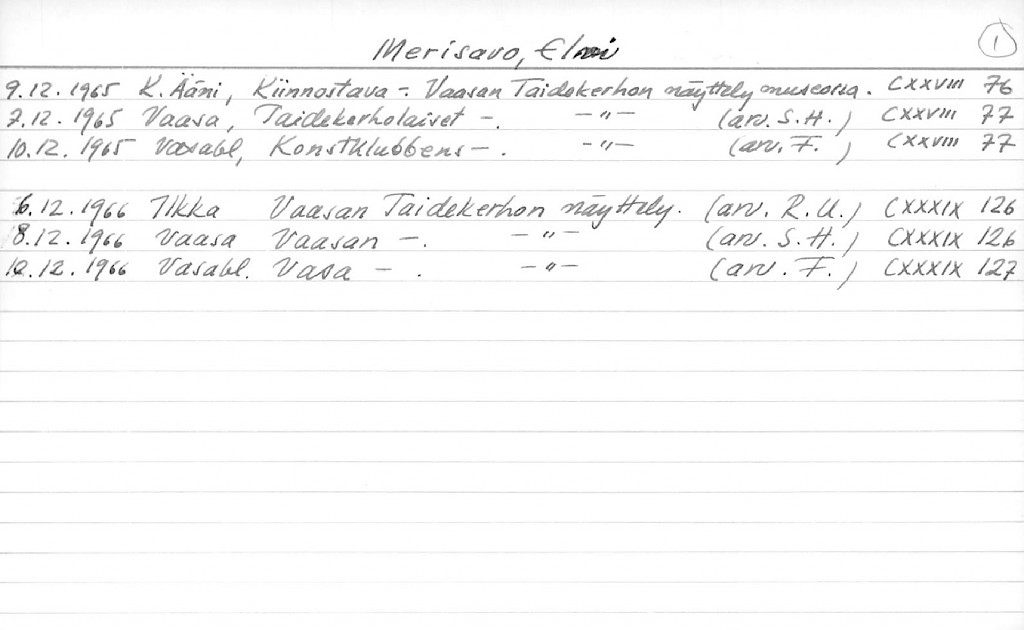 Merisavo, Elmi ①
9.12.1965 K. Ääni, Kiinnostava -. Vaasan Taidekerhon näyttely museossa. CXXVIII 76
7.12.1965 Vaasa, Taidekerholaiset -. -"- (arv. S.H.) CXXVIII 77
10.12.1965 Vasabl, Konstklubbens -. -"- (arv. F.) CXXVIII 77
6.12.1966 Ilkka Vaasan Taidekerhon näyttely. (arv. R.U.) CXXXIX 126
8.12.1966 Vaasa Vaasan -. -"- (arv. S.H.) CXXXIX 126
10.12.1966 Vasabl. Vasa - . -"- (arv. F.) CXXXIX 127